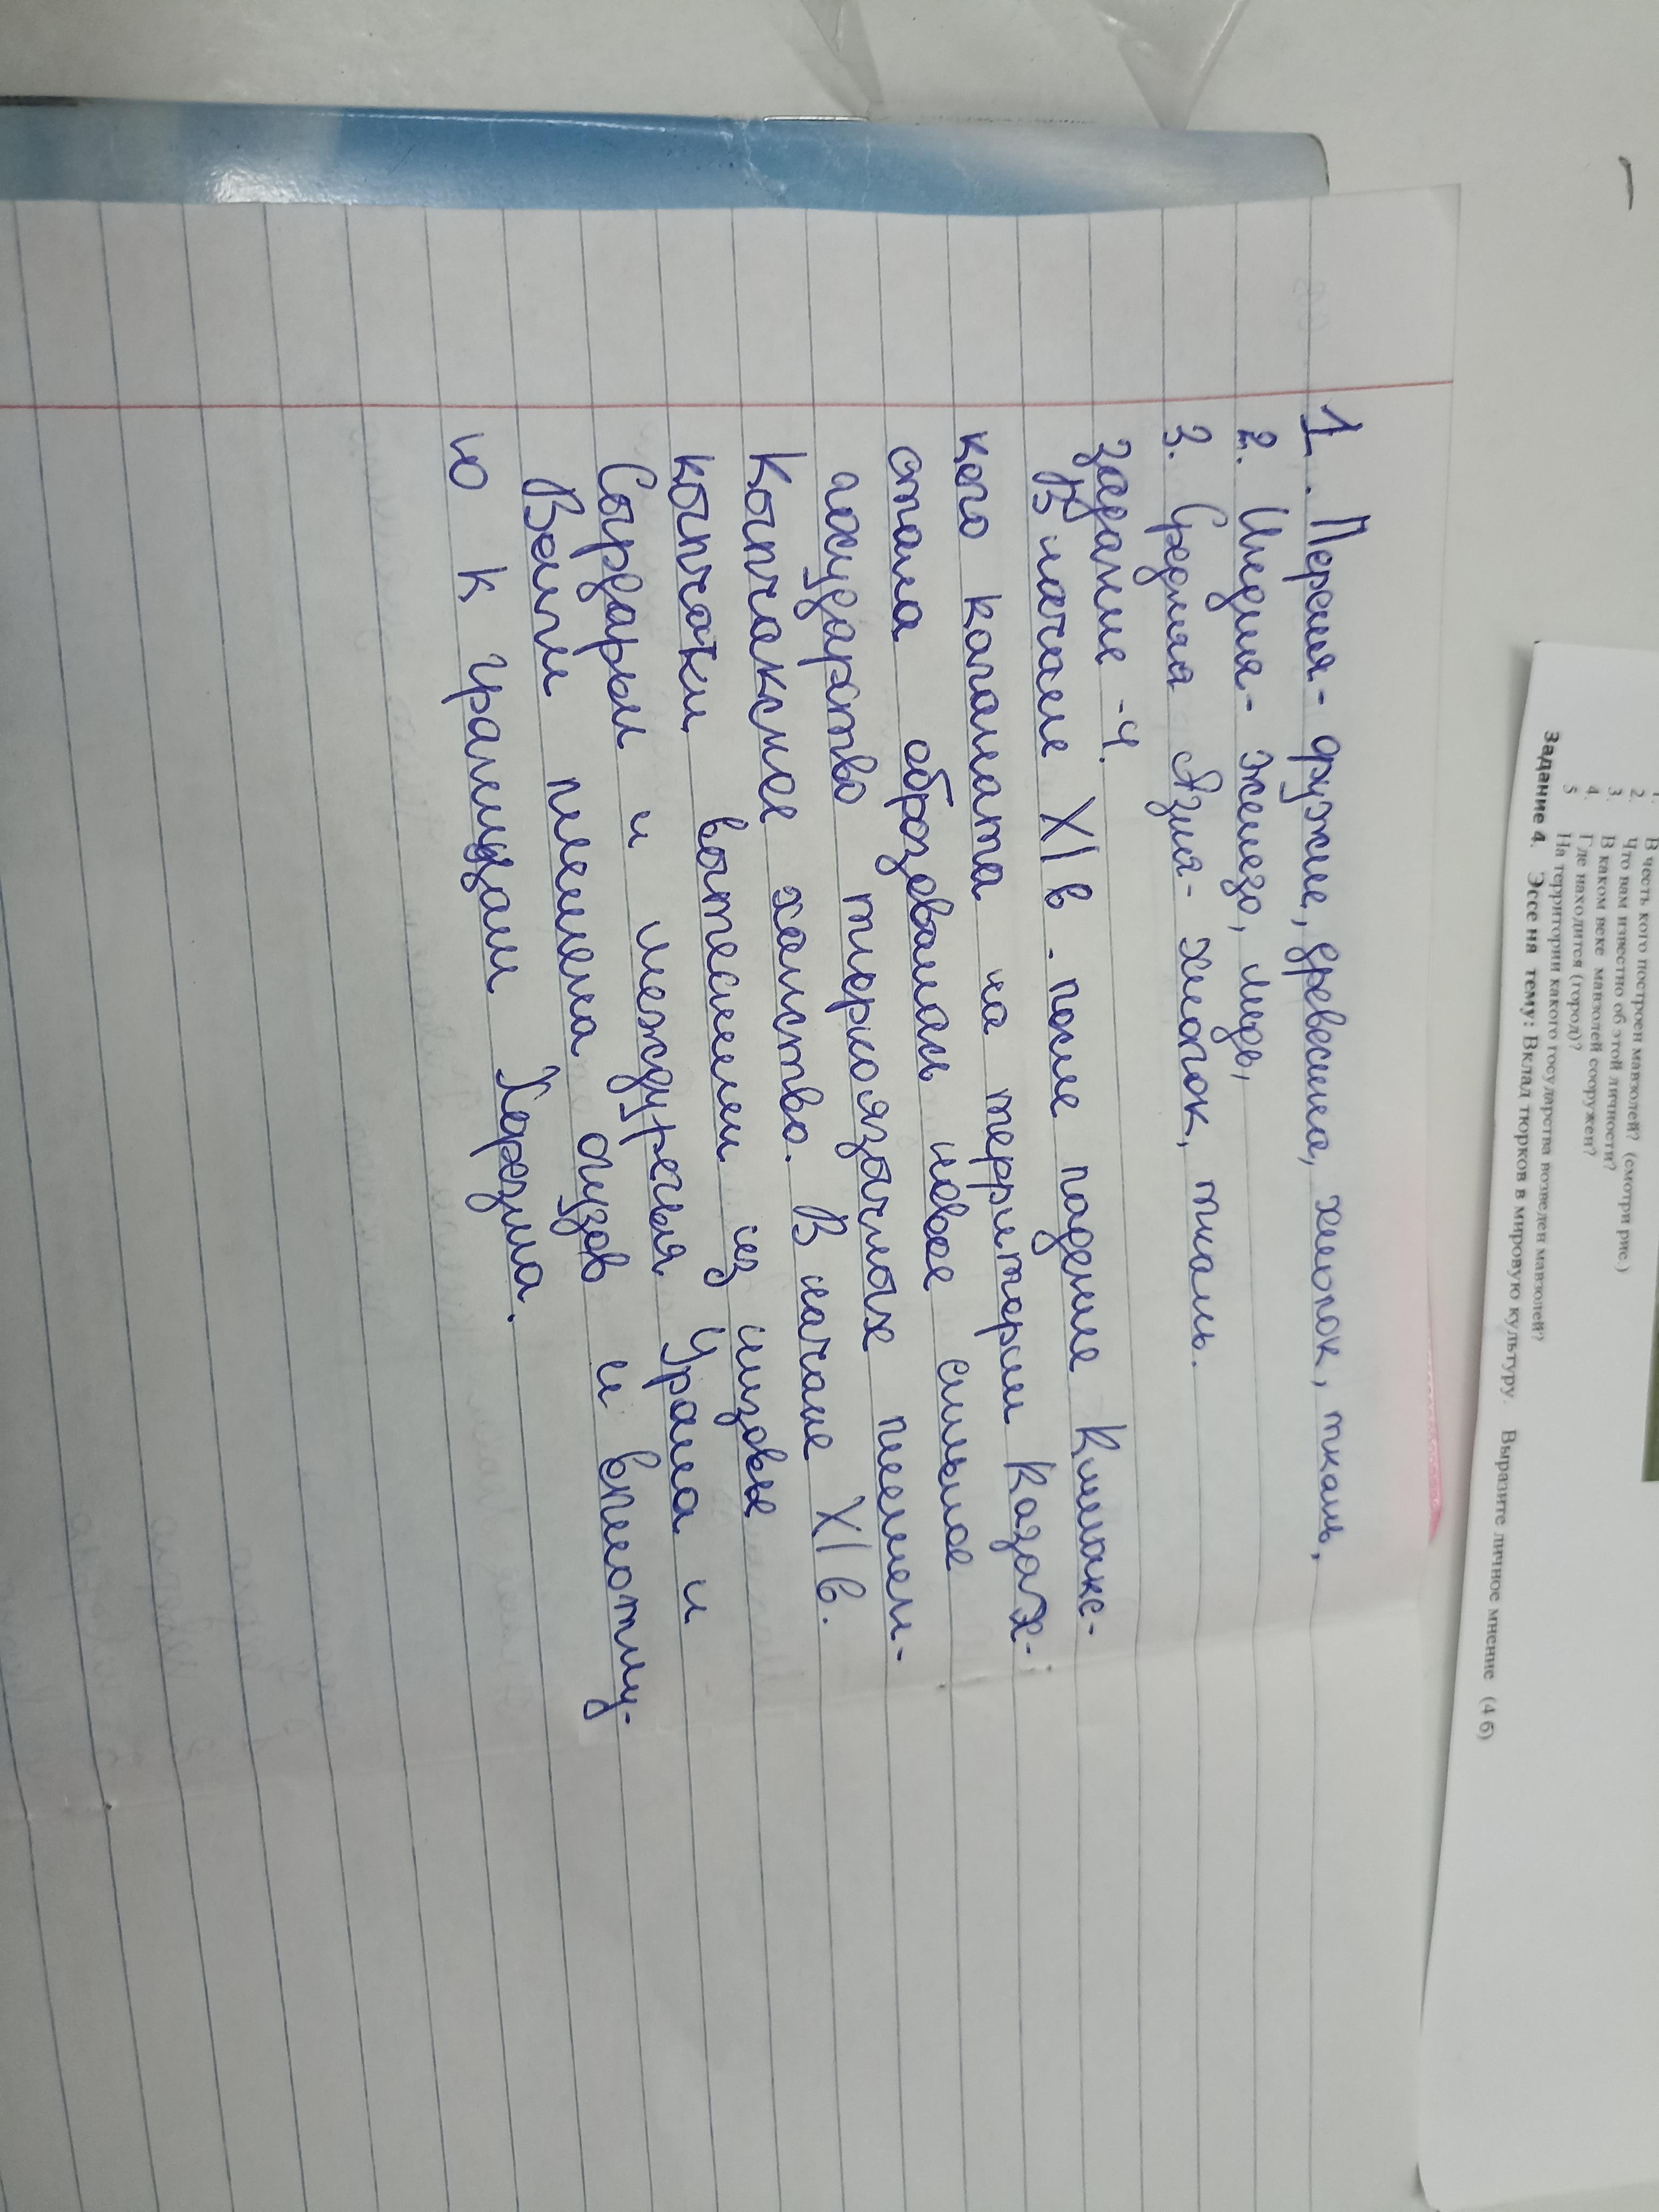 В честь кого построен мавзолей? (смотри рис.)
2. Что вам известно об этой личности?
3. В каком веке мавзолей сооружен?
4. Где находится (город)?
5 На территории какого государства возведен мавзолей?
Задание 4. Эссе на тему: Вклад тюрков в мировую культуру. Выразите личное мнение (4 б)
1. Персия - оружие, древесина, хлопок, ткань,
2. Индия - железо, медь,
3. Средняя Азия - хлопок, ткань.
задание - 4.
В начале XI в. после падение Кимакс-
кого каганата на территории Казах-
стана образовалась новое сильное
государство тюркоязычных племен-
Кыпчакское ханство. В начале XI в.
кыпчаки вытеснили из низовье
Сырдарьи и междуречья Урала и
Волги племена огузов и вплотну-
ю к границам Хорезма.